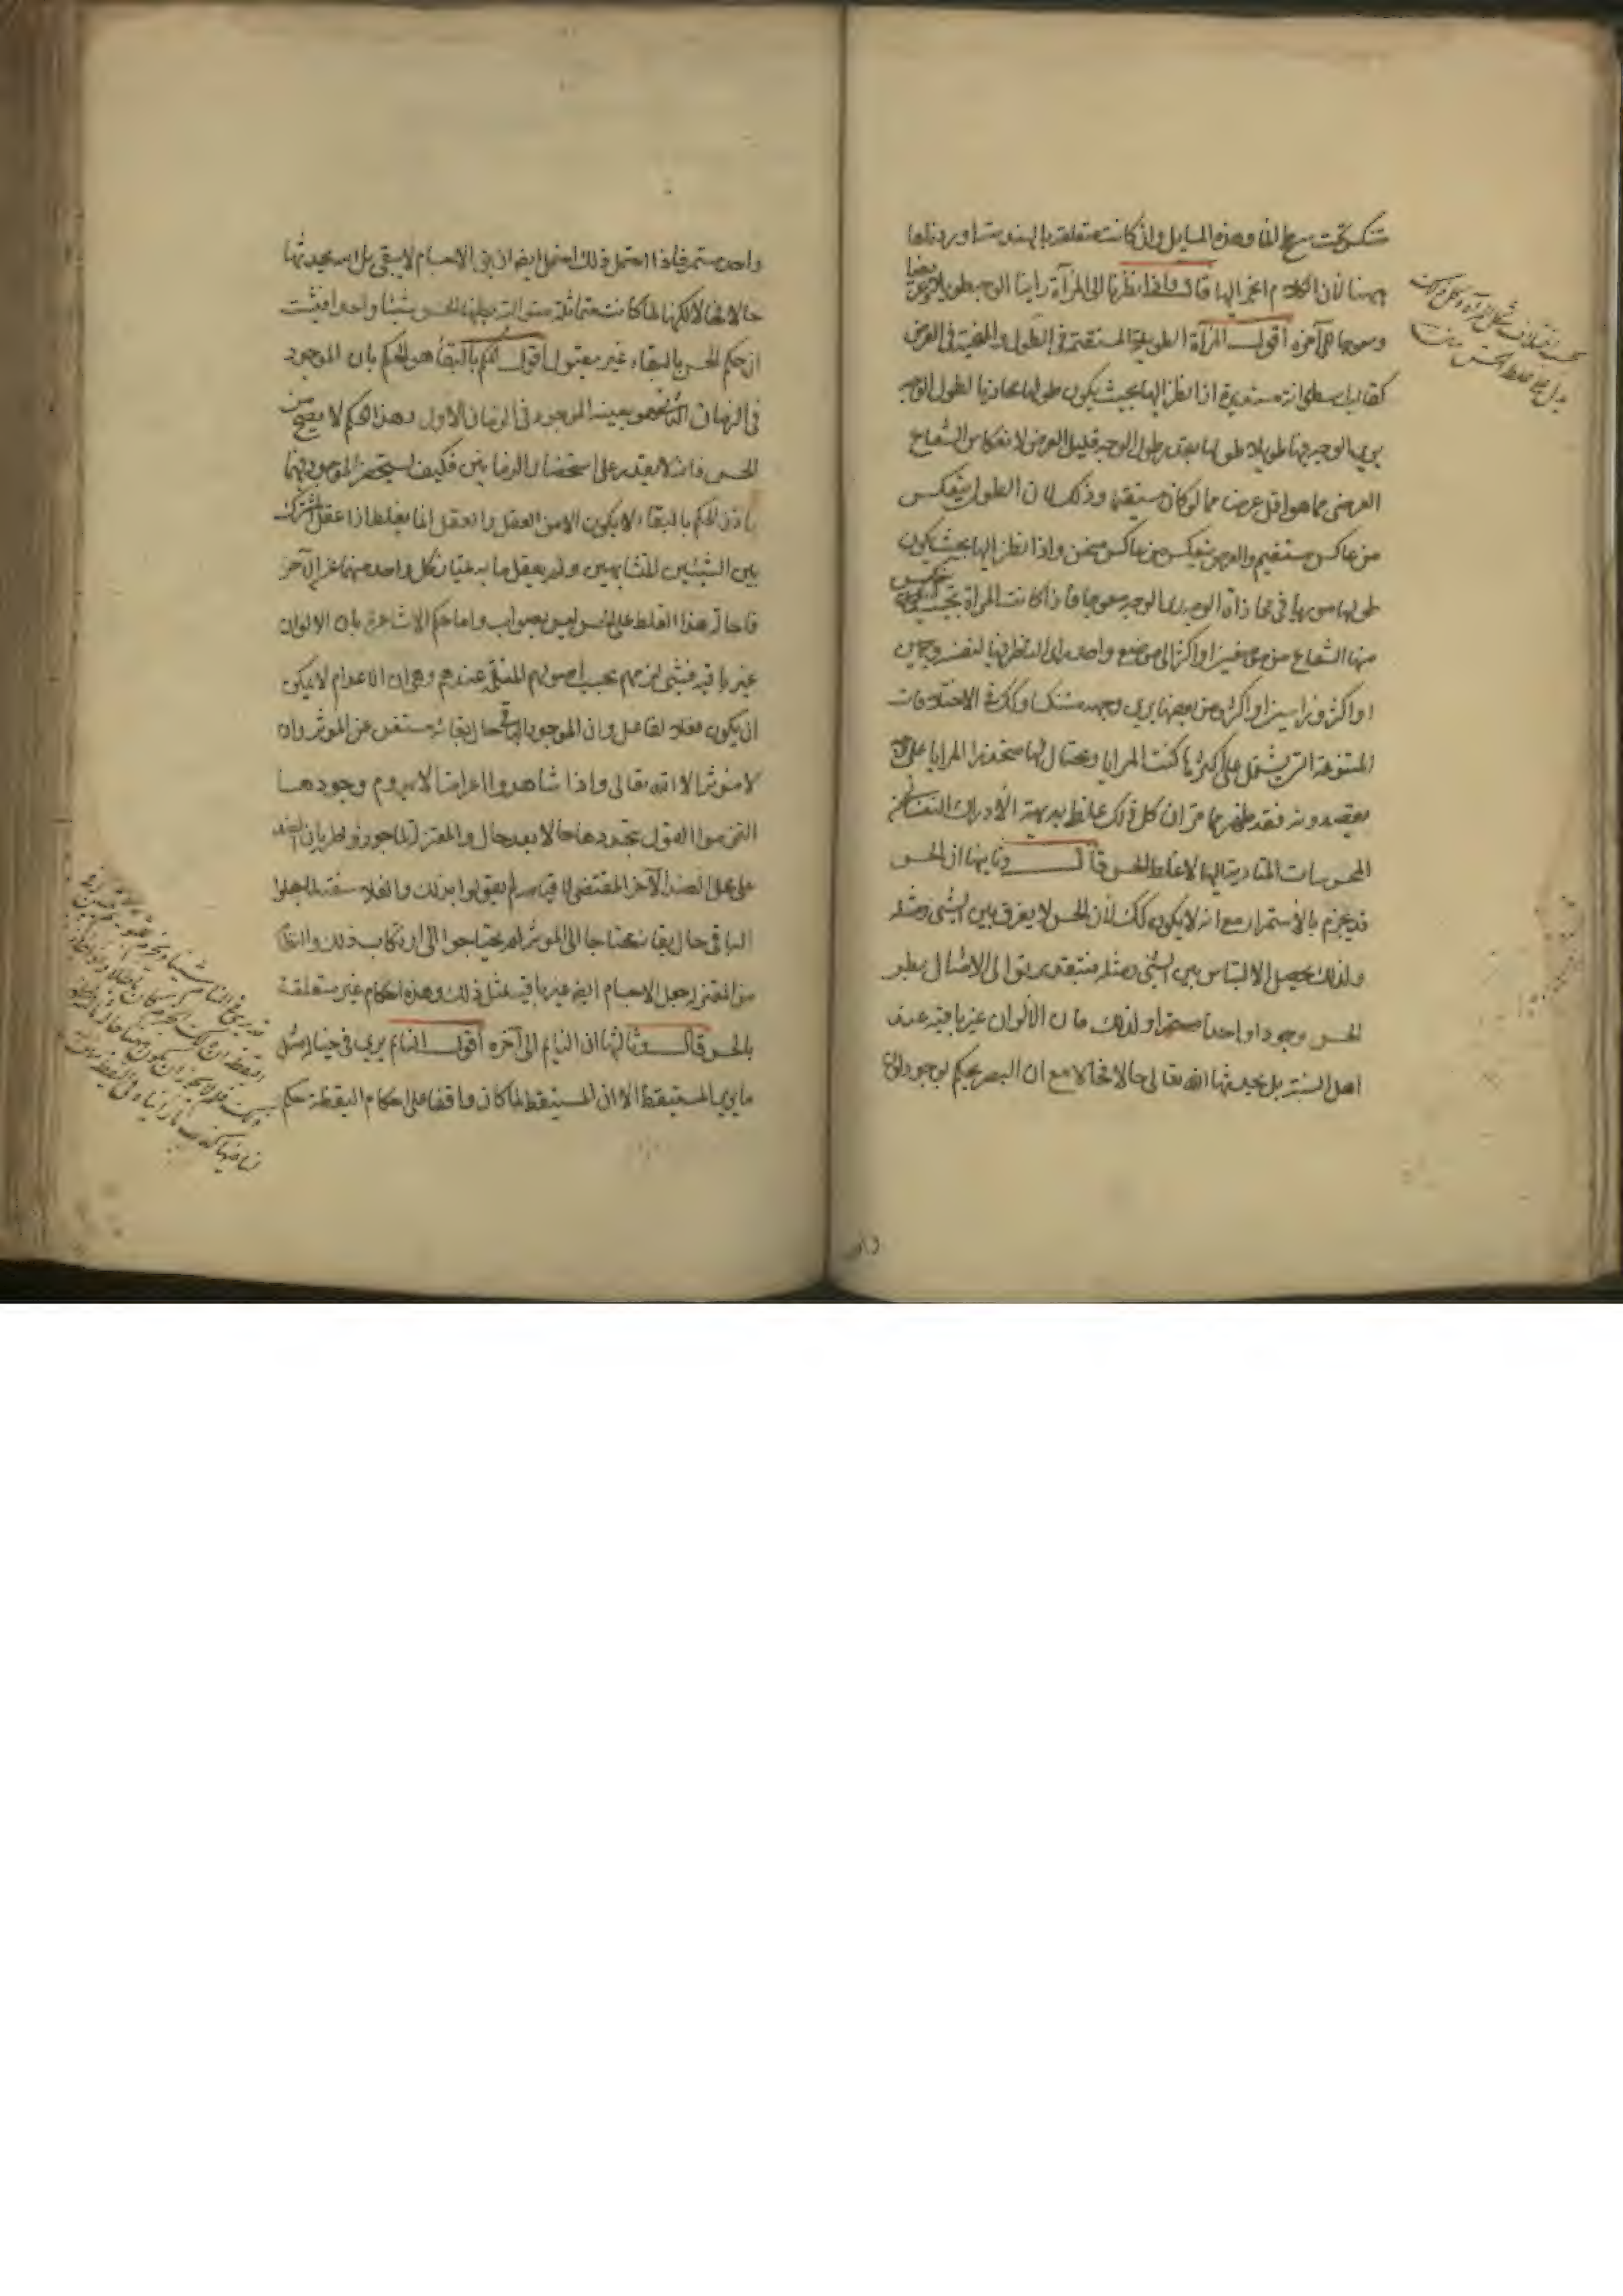 متنكوتحت سطح الماء وهذه المسايل وان كانت متعلقة بالهندسة اوردناها
ههنا لأن الكلام انجر اليها قال واذا نظرنا الى المرآة راينا الوجه طويلا وعريضا
ومعوجا الى آخره أقول المرآة الطويلة المستقيمة في الطول والمنحنية في العرض
كقالب اسطوانة مستديرة اذا نظر اليها بحيث يكون طولها محاذيا لطول الوجه
يرى الوجه فيها طويلا طولها بقدر طول الوجه قليل العرض لانعكاس الشعاع
العرضى مما هو اقل عرضا مما لو كان مستقيما وذلك لان الطول ينعكس
من عاكس مستقيم والعرض ينعكس من عاكس منحن واذا نظر اليها بحيث يكون
طولها موربا في محاذاة الوجه يرى الوجه معوجا فاذا كانت المرآة بحيث ينعكس
منها الشعاع من موضعين او اكثر الى موضع واحد راى الناظر فيها لنفسه وجهين
او اكثر وراسين او اكثر ومن بعضها يرى وجهه متنكسا وكذلك في الاختلافات
المتنوعة التي يشتمل على اكثرها كتب المرايا ويحتال لها متخذوا المرايا على ما
يقصدونه فقد ظهر مما مر ان كل ذلك غلط بديهة الادراك النفساني من
المحسوسات المتادية اليها لا غلط الحس قال وثانيها ان الحس
قد يجزم بالاستمرار مع انه لا يكون كذلك لأن الحس لا يفرق بين الشئ ومثله
ولذلك يحصل الالتباس بين الشئ ومثله فبتقدير توالى الامثال يظن
الحس وجودا واحدا مستمرا ولذلك فان الألوان غير باقية عند
اهل السنة بل يحدثها الله تعالى حالا فحالا مع ان البصر يحكم بوجود لون
واحد مستمر فاذا احتمل ذلك احتمل ايضا ان يق الاجسام لا يبقى بل الله يحدثها
حالا فحالا لكنها لما كانت متماثلة متوالية يظنها الحس شيئا واحدا فثبت
ان حكم الحس بالبقاء غير مقبول أقول الحكم بالبقاء هو الحكم بان الموجود
في الزمان الثاني هو بعينه الموجود في الزمان الاول وهذا الحكم لا يصح من
الحس فانه لا يقدر على استحضار الزمانين فكيف يستحضر الموجود فيهما
فاذن الحكم بالبقاء لا يكون الا من العقل والعقل انما يغلط اذا عقل المشترك
بين الشيئين المتشابهين ولم يعقل ما به يمتاز كل واحد منهما عن الآخر
فاحالة هذا الغلط على الحس ليس بصواب واما حكم الاشاعرة بان الالوان
غير باقية فشئ لزمهم بحسب اصولهم المسلمة عندهم وهي ان الاعدام لا يمكن
ان يكون فعلا لفاعل وان الموجود الباقي حال بقائه مستغن عن المؤثر وان
لا مؤثر الا الله تعالى واذا شاهدوا اعراضا لا يدوم وجودها
التزموا القول بتجددها حالا بعد حال والمعتزلة لما جوزوا طريان الضد
على محل الضد الآخر المقتضى لافنائه لم يقولوا بذلك والفلاسفة لما جعلوا
الباقي حال بقائه محتاجا الى المؤثر لم يحتاجوا الى ارتكاب ذلك والنظام
من المعتزلة جعل الاجسام ايضا غير باقية بمثل ذلك وهذه احكام غير متعلقة
بالحس قال وثالثها ان النايم الى آخره أقول النايم يرى في خياله مثل
ما يرى المستيقظ الا ان المستيقظ لما كان واقفا على احكام اليقظة حكم